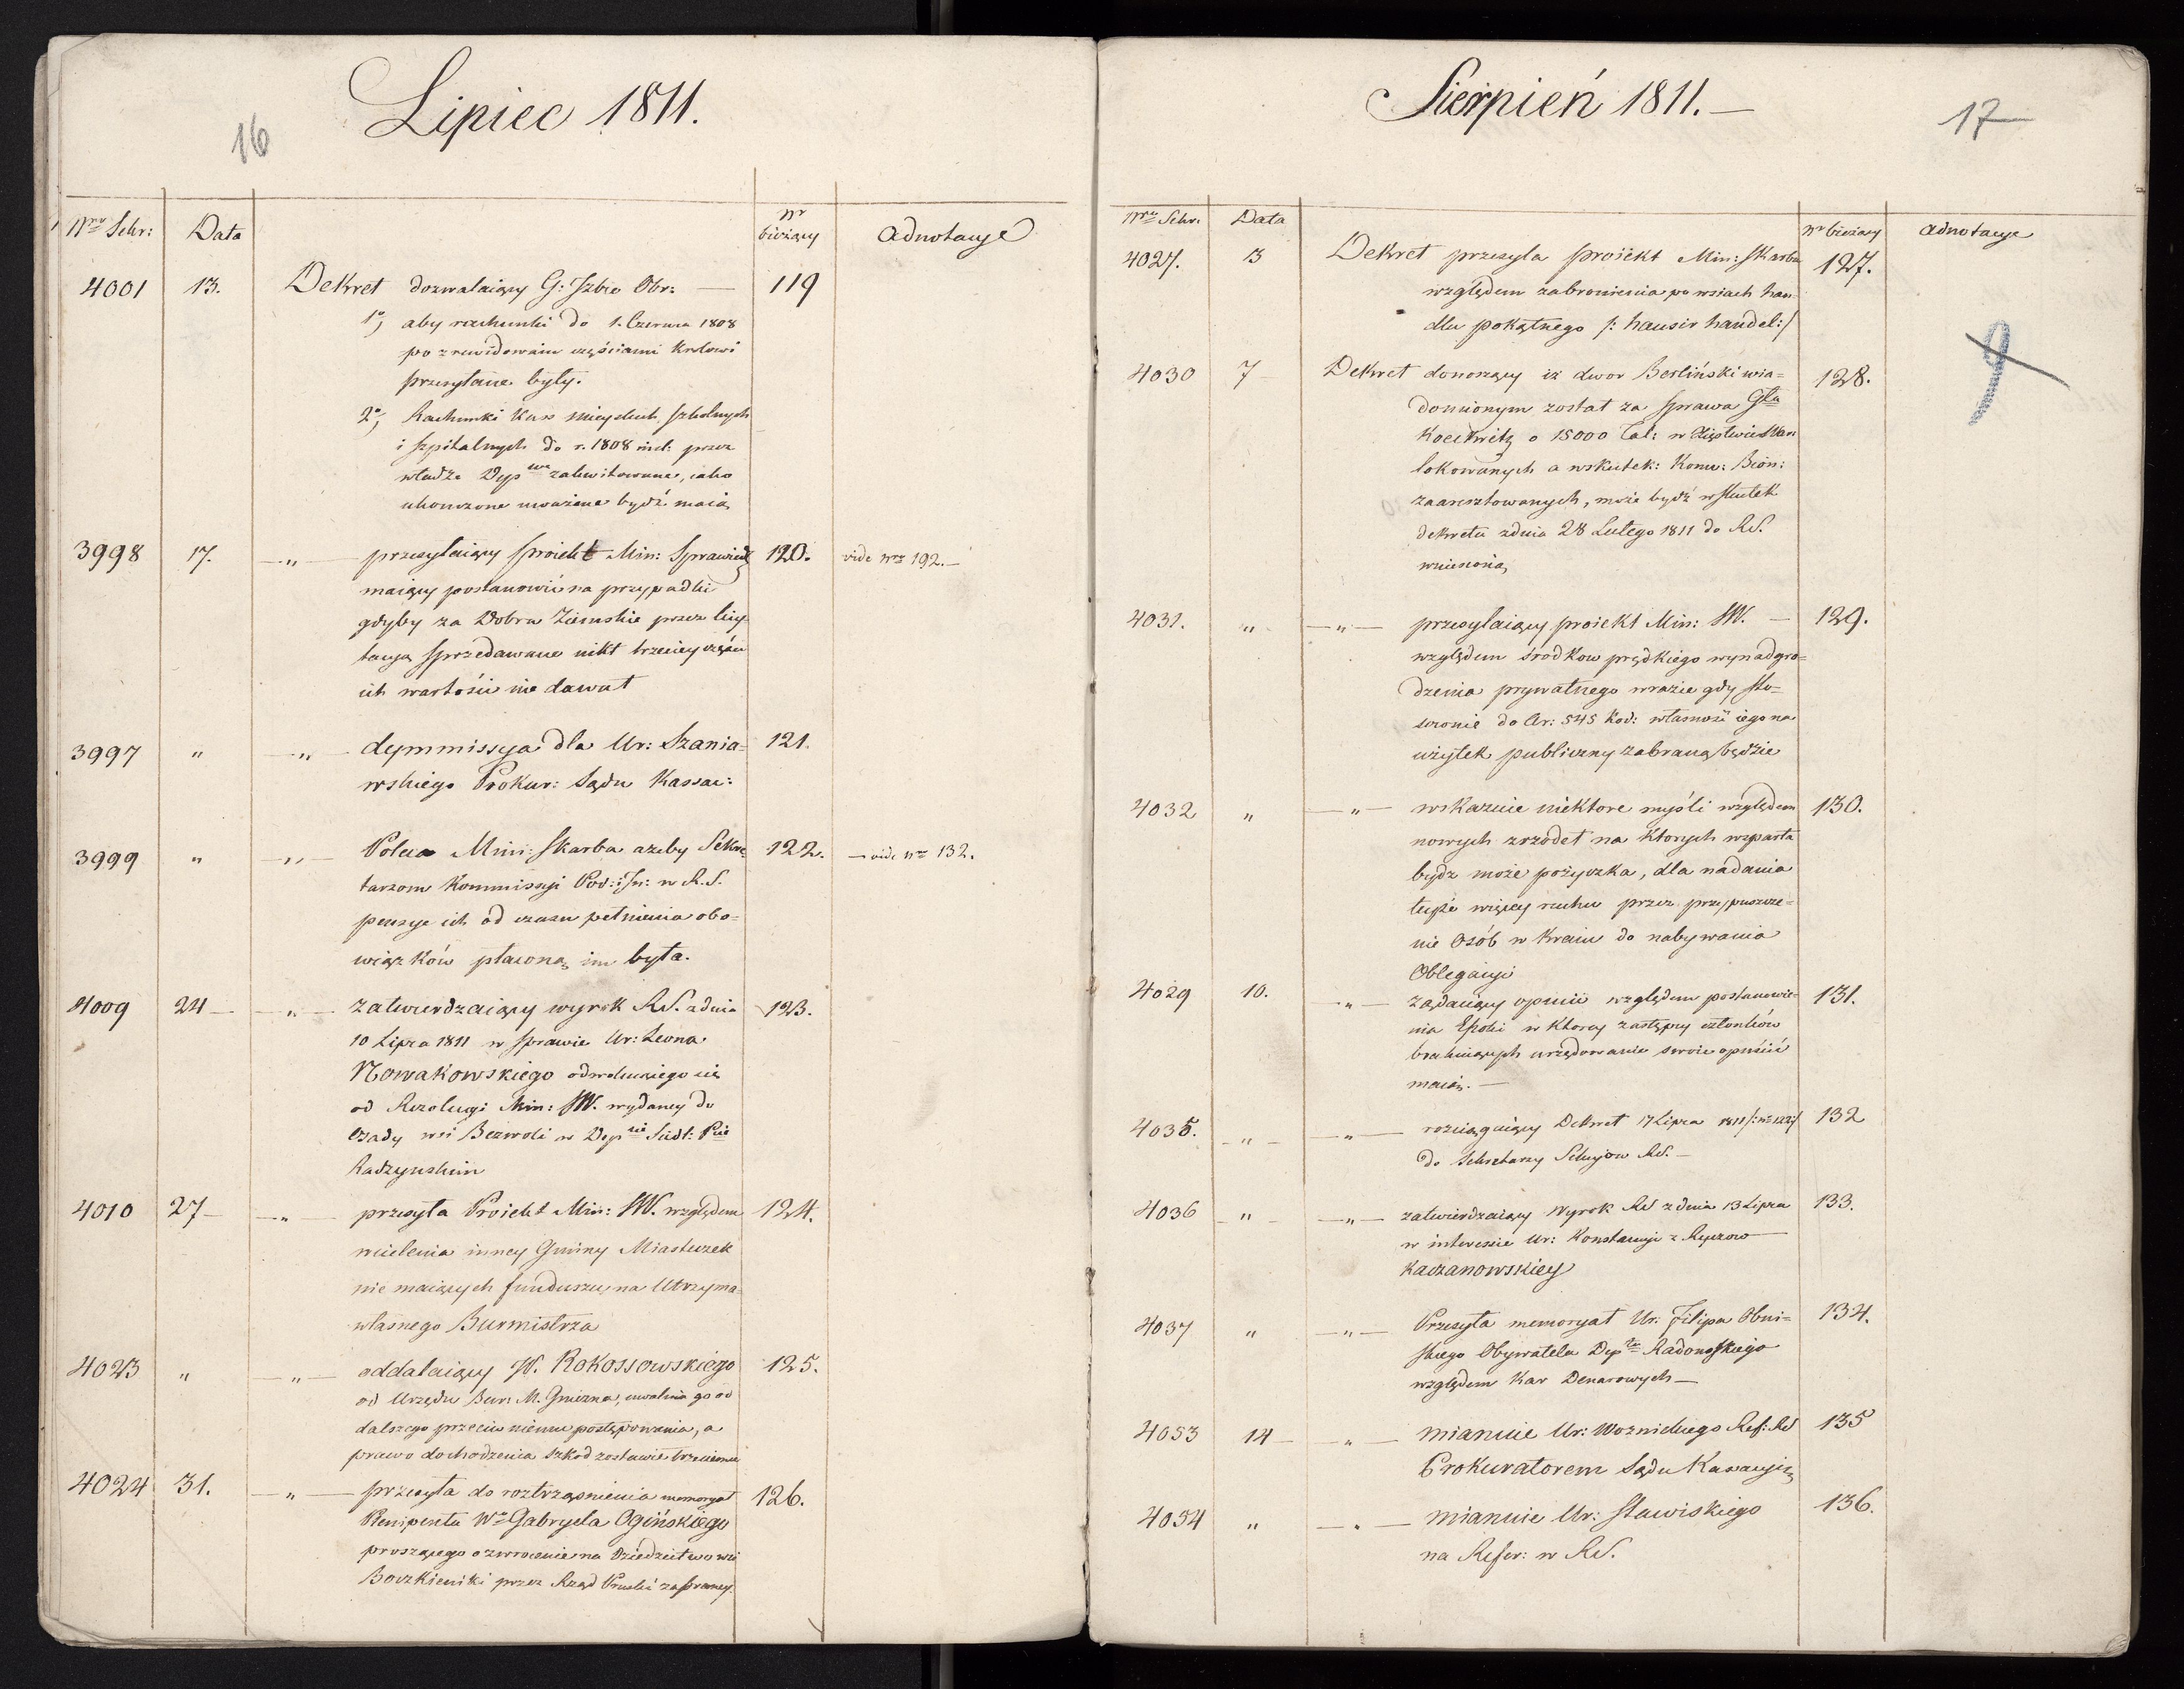 16
Lipiec 1811.
Nro Sekr: Data Nr bieżący Adnotacye
4001 13. Dekret dozwalaiący G: Izbie Obr: — 119
1o, aby rachunki do 1. Czerwca 1808
po zrewidowaniu częściami Krolowi
przesyłane były.
2o, Rachunki Kass mieyskich szkolnych
i szpitalnych do r. 1808 incl: przez
władze Depwe zakwitowane, iako
ukonczone uważane bydź maią
3998 17. —„— przesyłaiący proiekt Min: Sprawiedl 120. vide nro 192.—
maiący postanowić na przypadki
gdyby za Dobra Ziemskie przez licy-
tacyą sprzedawane nikt trzeciey części
ich wartości nie dawał
3997 „ —„— dymmissya dla Ur: Szania- 121.
wskiego Prokur: Sądu Kassac:
3999 „ —„— Poleca Min: Skarba azeby Sekre- 122. —vide nro 132.
tarzom Kommissyi Pod: i In: w R. S.
pensye ich od czasu pełnienia obo-
wiązków płacona im była.
4009 24— —„— zatwierdzaiący wyrok RS. z dnia 123.
10 Lipca 1811 w sprawie Ur: Leona
Nowakowskiego odwołuiącego się
od Rezolucyi Min: SW. wydaney do
Osady wsi Bezwoli w Depcie Siedl: Pcie
Radzynskim
4010 27— —„— przesyła Proiekt Min: SW. względem 124.
wcielenia inney Gminy Miasteczek
nie maiących funduszu na Utrzyma-
własnego Burmistrza
4023 „ —„— oddalaiący W. Rokossowskiego 125.
od Urzędu Bur: M. Gniezna, uwalnia go od
dalszego przeciw niemu postępowania, a
prawo dochodzenia szkod zostawia trzeciemu
4024 31. —„— przesyła do roztrząśnienia memoryał 126.
Plenipenta Wo Gabryela Ogińskiego
proszącego o zwrocenie na Dziedzictwo wsi
Boczkieniki przez Rząd Pruski zabraney.
17
Sierpień 1811.—
Nro Sekr. Data Nr bieżący Adnotacye
4027. 3 Dekret przesyla proiekt Min: Skarbu 127.
względem zabronienia po wsiach han-
dlu pokątnego /: hausir handel:/
4030 7— Dekret donoszący iz dwor Berliński wia- 128.
domionym został za sprawa Gła
Koeckritz o 15000 Tal: w Xięstwie War:
lokowanych a wskutek: Konw: Bion:
zaaresztowanych, może bydź wskutek
dekretu z dnia 28 Lutego 1811 do RS.
wniesioną
4031. „ —„— przesyłaiący proiekt Min: SW. — 129.
względem środkow prędkiego wynadgro-
dzenia prywatnego w razie gdy sto-
sownie do Ar: 545 Kod: własność iego na
użytek publiczny zabraną będzie
4032 „ —„— wskazuie niektore myśli względem 130.
nowych zrzodeł na ktorych wsparta
bydz może pożyczka, dla nadania
teyże więcey ruchu przez przypuszcze-
nie Osób w Kraiu do nabywania
Obligacyi
4029 10. —„— żądaiący opinii względem postanowie- 131.
nia Epoki w ktorey zastępcy członków
brakuiących urzędowanie swoie opuścić
maią.—
4035. —„— —„— rozciągaiący Dekret 17 Lipca 1811 /: nro 122:/ 132
do Sekretarzy Sekcyow RS.—
4036 —„— —„— zatwierdzaiący Wyrok RS z dnia 13 Lipca 133.
w interessie Ur: Konstancyi z Ryczow
Kaczanowskiey
4037 „ —„— Przesyła memoryał Ur: Filipa Obni- 134.
skiego Obywatela Depte Radomskiego
względem Kar Denarowych—
4053 14— —„— mianuie Ur: Woznickiego Ref: RS 135
Prokuratorem Sądu Kasacyi:
4054 „ —„— mianuie Ur: Stawiskiego 136.
na Refer: w RS.